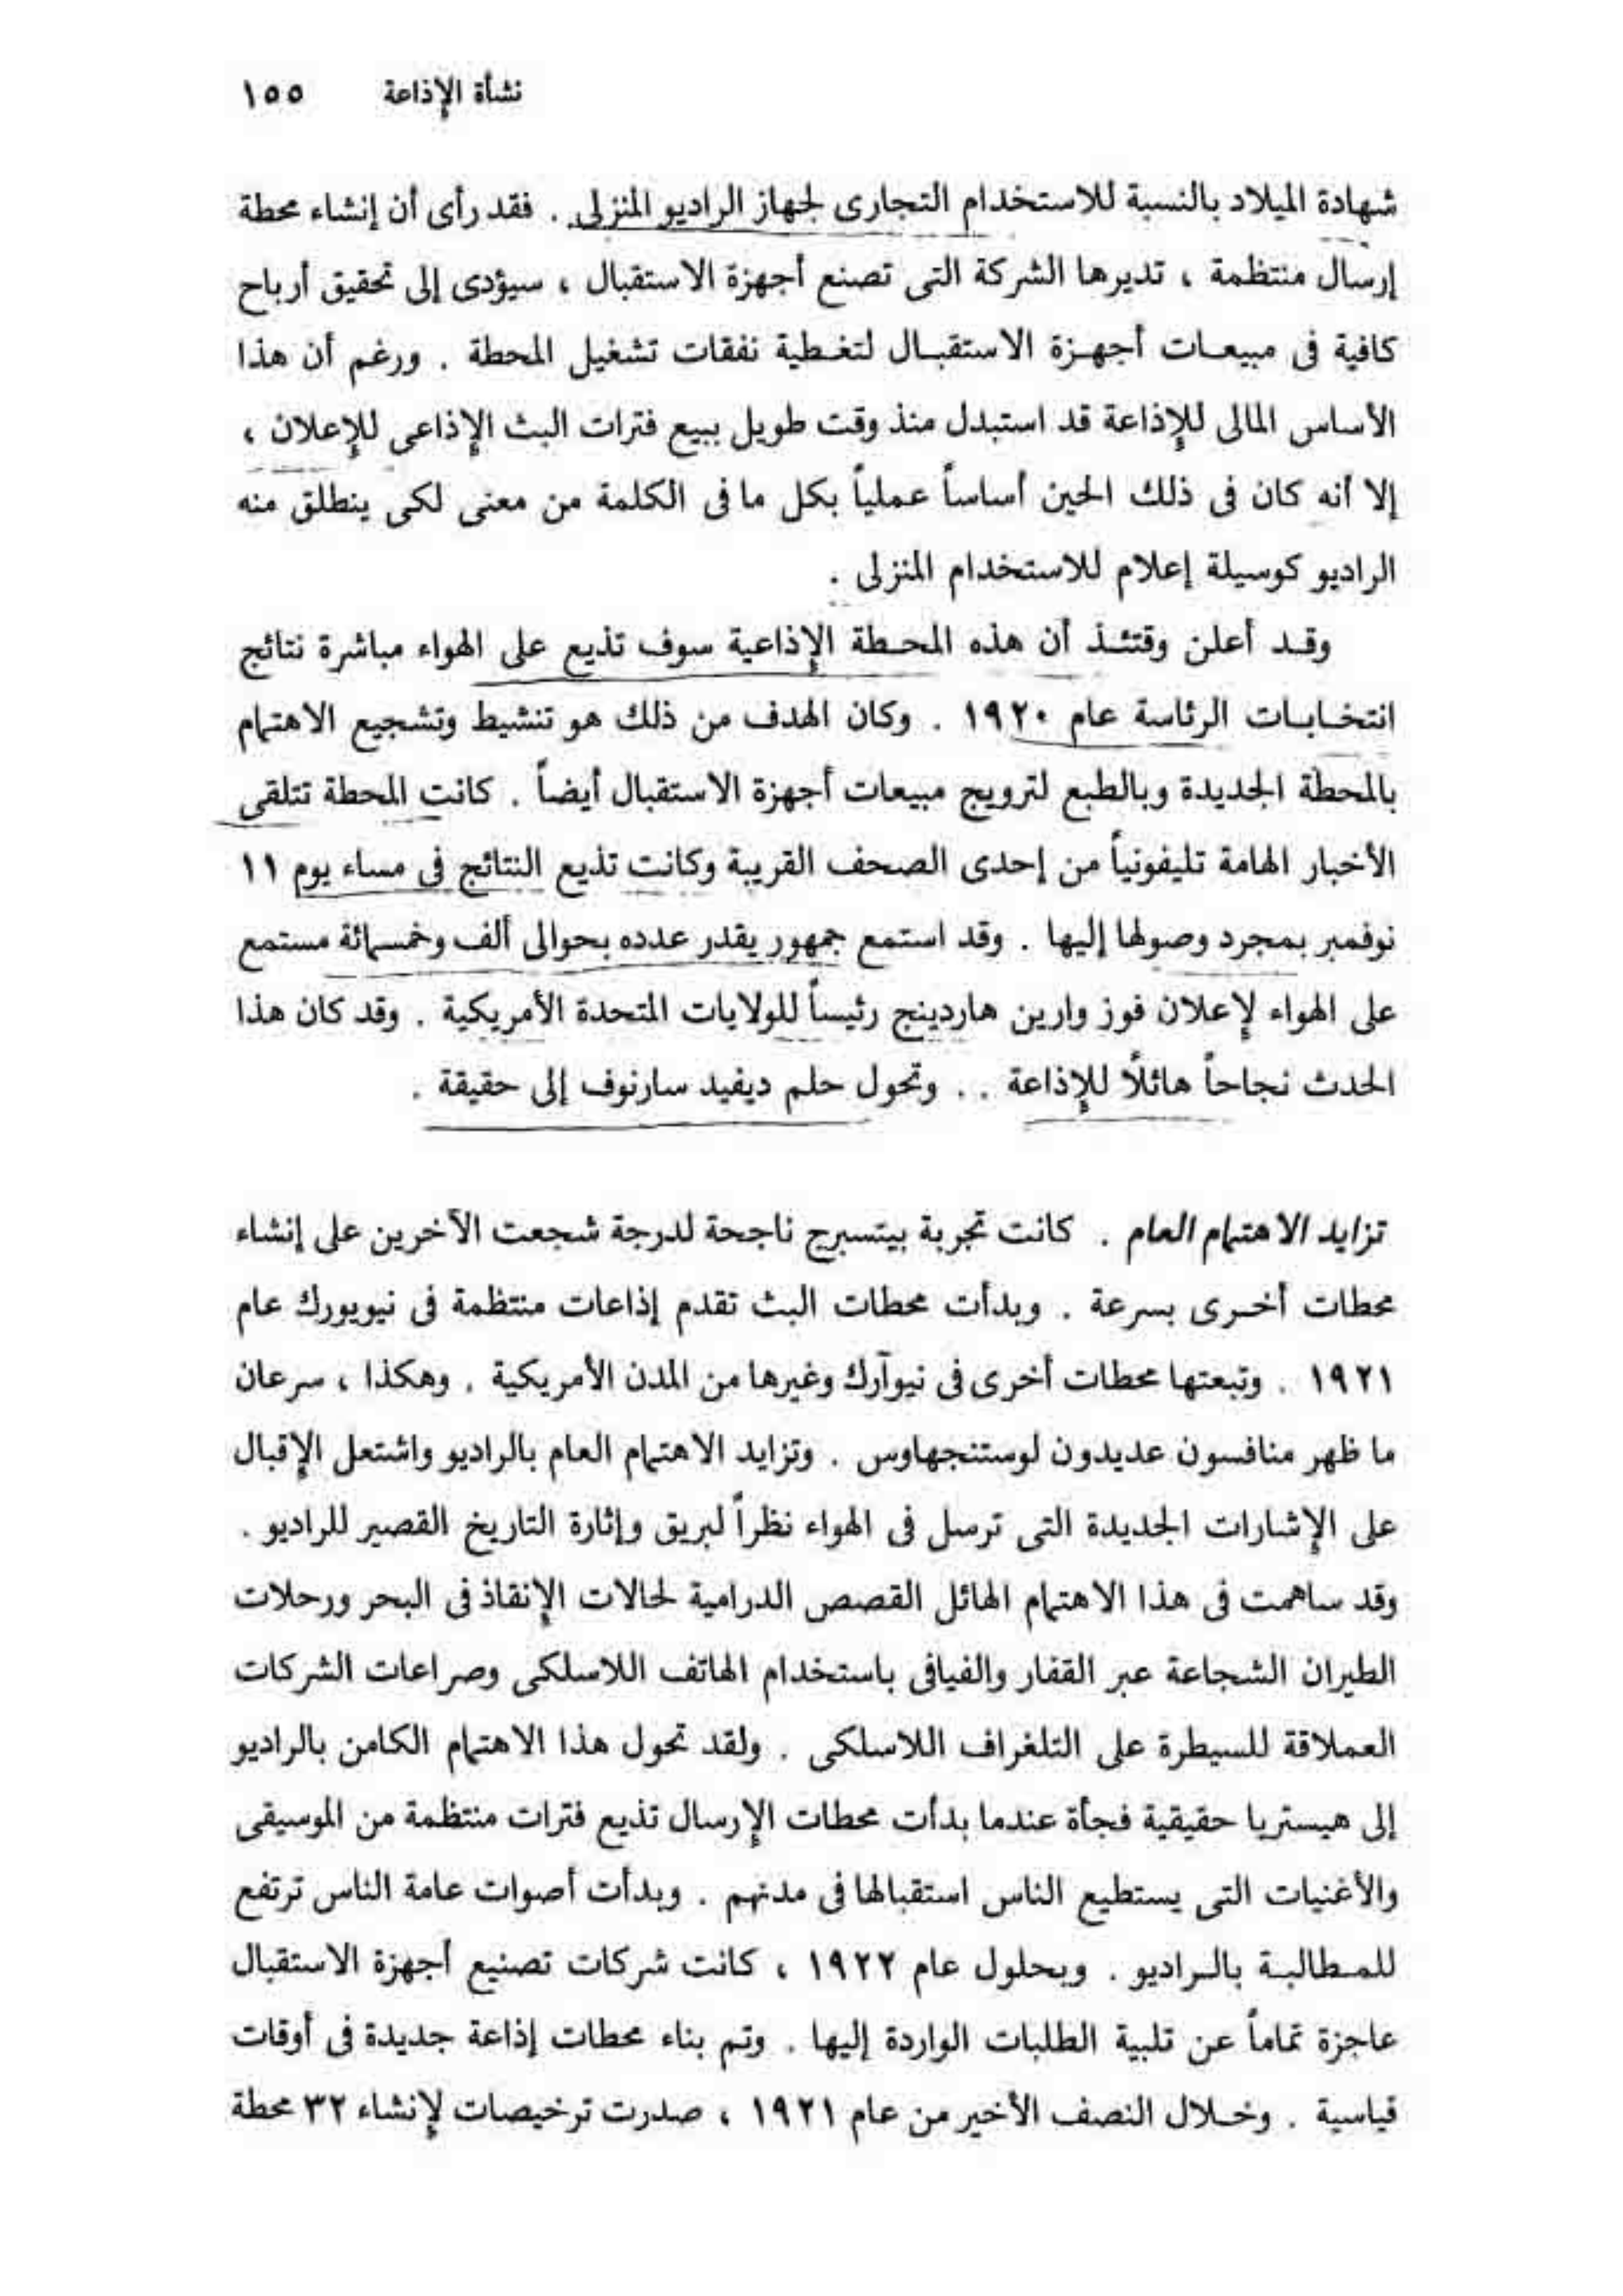 نشأة الإذاعة ١٥٥
شهادة الميلاد بالنسبة للاستخدام التجارى لجهاز الراديو المنزلى . فقد رأى أن إنشاء محطة
إرسال منتظمة ، تديرها الشركة التى تصنع أجهزة الاستقبال ، سيؤدى إلى تحقيق أرباح
كافية فى مبيعات أجهزة الاستقبال لتغطية نفقات تشغيل المحطة . ورغم أن هذا
الأساس المالى للإذاعة قد استبدل منذ وقت طويل ببيع فترات البث الإذاعى للإعلان ،
إلا أنه كان فى ذلك الحين أساساً عملياً بكل ما فى الكلمة من معنى لكى ينطلق منه
الراديو كوسيلة إعلام للاستخدام المنزلى .
وقد أعلن وقتئذ أن هذه المحطة الإذاعية سوف تذيع على الهواء مباشرة نتائج
انتخابات الرئاسة عام ١٩٢٠ . وكان الهدف من ذلك هو تنشيط وتشجيع الاهتمام
بالمحطة الجديدة وبالطبع لترويج مبيعات أجهزة الاستقبال أيضاً . كانت المحطة تتلقى
الأخبار الهامة تليفونياً من إحدى الصحف القريبة وكانت تذيع النتائج فى مساء يوم ١١
نوفمبر بمجرد وصولها إليها . وقد استمع جمهور يقدر عدده بحوالى ألف وخمسمائة مستمع
على الهواء لإعلان فوز وارين هاردينج رئيساً للولايات المتحدة الأمريكية . وقد كان هذا
الحدث نجاحاً هائلًا للإذاعة . . وتحول حلم ديفيد سارنوف إلى حقيقة .
تزايد الاهتمام العام . كانت تجربة بيتسبرج ناجحة لدرجة شجعت الآخرين على إنشاء
محطات أخرى بسرعة . وبدأت محطات البث تقدم إذاعات منتظمة فى نيويورك عام
١٩٢١ . وتبعتها محطات أخرى فى نيوآرك وغيرها من المدن الأمريكية . وهكذا ، سرعان
ما ظهر منافسون عديدون لوستنجهاوس . وتزايد الاهتمام العام بالراديو واشتعل الإقبال
على الإشارات الجديدة التى ترسل فى الهواء نظراً لبريق وإثارة التاريخ القصير للراديو .
وقد ساهمت فى هذا الاهتمام الهائل القصص الدرامية لحالات الإنقاذ فى البحر ورحلات
الطيران الشجاعة عبر القفار والفيافى باستخدام الهاتف اللاسلكى وصراعات الشركات
العملاقة للسيطرة على التلغراف اللاسلكى . ولقد تحول هذا الاهتمام الكامن بالراديو
إلى هيستريا حقيقية فجأة عندما بدأت محطات الإرسال تذيع فترات منتظمة من الموسيقى
والأغنيات التى يستطيع الناس استقبالها فى مدنهم . وبدأت أصوات عامة الناس ترتفع
للمطالبة بالراديو . وبحلول عام ١٩٢٢ ، كانت شركات تصنيع أجهزة الاستقبال
عاجزة تماماً عن تلبية الطلبات الواردة إليها . وتم بناء محطات إذاعة جديدة فى أوقات
قياسية . وخلال النصف الأخير من عام ١٩٢١ ، صدرت ترخيصات لإنشاء ٣٢ محطة